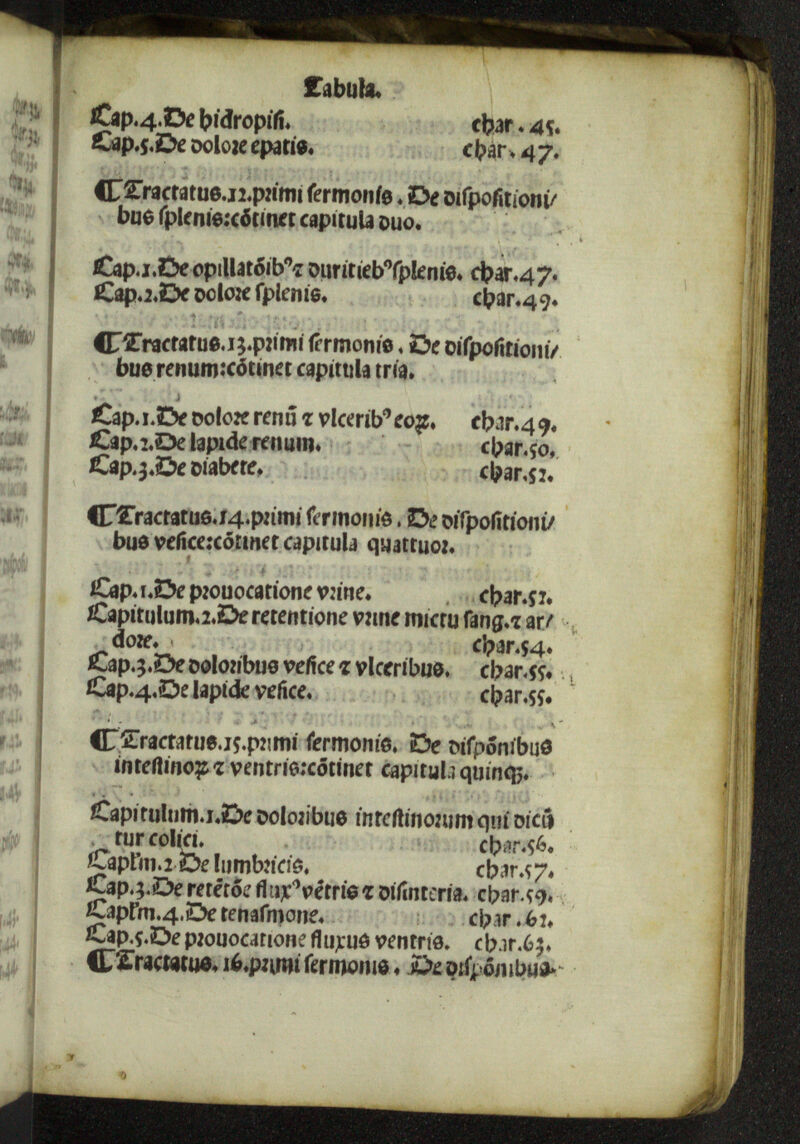 Tabula.
Cap.4.De hidropisi. char.45.
Cap.5.De dolore epatis. char.47.
¶Tractatus.12.primi sermonis. De dispositioni/
bus splenis:cōtinet capitula duo.
Cap.1.De opillatōibꝰ⁊ duritieibꝰsplenis. char.47.
Cap.2.De dolore splenis. char.49.
¶Tractatus.13.primi sermonis. De dispositioni/
bus renum:cōtinet capitula tria.
Cap.1.De dolore renū ⁊ vlceribꝰ eoꝝ. char.49.
Cap.2.De lapide renum. char.50.
Cap.3.De diabete. char.52.
¶Tractatus.14.primi sermonis. De dispositioni/
bus vesice:cōtinet capitula quattuor.
Cap.1.De prouocatione vrine. char.53.
Capitulum.2.De retentione vrine mictu sang.⁊ ar/
dore. char.54.
Cap.3.De doloribus vesice ⁊ vlceribus. char.55.
Cap.4.De lapide vesice. char.55.
¶Tractatus.15.primi sermonis. De dispōnibus
intestinoꝝ ⁊ ventris:cōtinet capitula quinqꝫ.
Capitulum.1.De doloribus intestinorum qui dicū
tur colici. char.56.
Caplm.2 De lumbricis. char.57.
Cap.3.De retētōe fluxꝰ vētris ⁊ disinteria. char.59.
Caplm.4.De tenasmone. char.62.
Cap.5.De prouocatione fluxus ventris. char.63.
¶Tractatus.16.primi sermonis. De dispōnibus